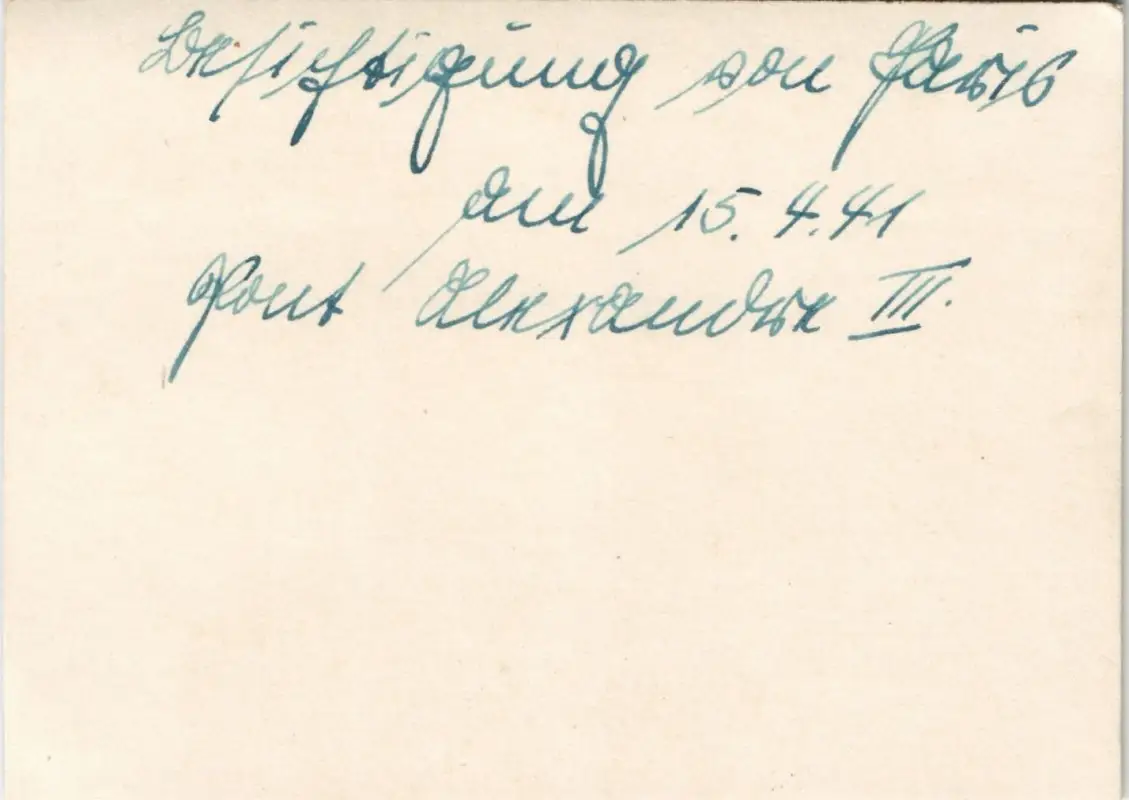 Besichtigung von Paris
am 15.4.41
Pont Alexandre III.